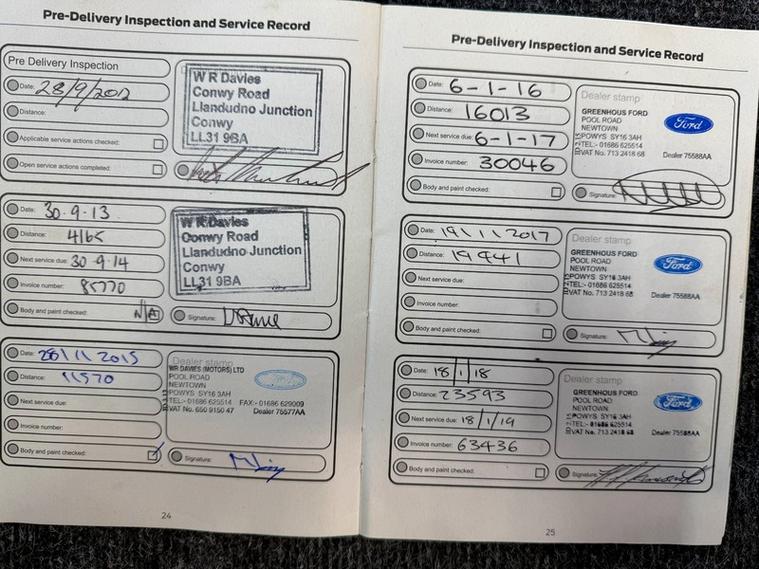 Pre-Delivery Inspection and Service Record
Pre Delivery Inspection
Date: 28/9/2012
Distance:
Applicable service actions checked:
Open service actions completed:
W R Davies
Conwy Road
Llandudno Junction
Conwy
LL31 9BA
Date: 30.9.13
Distance: 4165
Next service due: 30.9.14
Invoice number: 85770
Body and paint checked: N/A
W R Davies
Conwy Road
Llandudno Junction
Conwy
LL31 9BA
Signature:
Date: 2011 2015
Distance: 11570
Next service due:
Invoice number:
Body and paint checked:
Dealer stamp
WR DAVIES (MOTORS) LTD
POOL ROAD
NEWTOWN
POWYS SY16 3AH
TEL:- 01686 625514 FAX:- 01686 629009
VAT No. 650 9150 47 Dealer 75577AA
Signature:
24
Pre-Delivery Inspection and Service Record
Date: 6-1-16
Distance: 16013
Next service due: 6-1-17
Invoice number: 30046
Body and paint checked:
Dealer stamp
GREENHOUS FORD
POOL ROAD
NEWTOWN
POWYS SY16 3AH
TEL:- 01686 625514
VAT No. 713 2418 68 Dealer 75588AA
Ford
Signature:
Date: 19 1 2017
Distance: 19941
Next service due:
Invoice number:
Body and paint checked:
Dealer stamp
GREENHOUS FORD
POOL ROAD
NEWTOWN
POWYS SY16 3AH
TEL:- 01686 625514
VAT No. 713 2418 68 Dealer 75588AA
Ford
Signature:
Date: 18/1/18
Distance: 23593
Next service due: 18/1/19
Invoice number: 63436
Body and paint checked:
Dealer stamp
GREENHOUS FORD
POOL ROAD
NEWTOWN
POWYS SY16 3AH
TEL:- 01686 625514
VAT No. 713 2418 68 Dealer 75588AA
Ford
Signature:
25